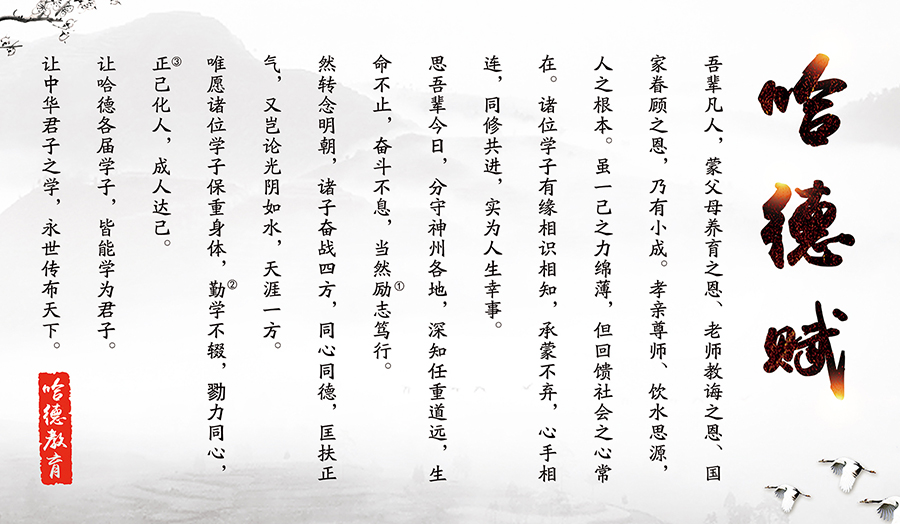 哈德赋
吾辈凡人，蒙父母养育之恩、老师教诲之恩、国
家眷顾之恩，乃有小成。孝亲尊师、饮水思源，
人之根本。虽一己之力绵薄，但回馈社会之心常
在。诸位学子有缘相识相知，承蒙不弃，心手相
连，同修共进，实为人生幸事。
思吾辈今日，分守神州各地，深知任重道远，生
命不止，奋斗不息，当然励①志笃行。
然转念明朝，诸子奋战四方，同心同德，匡扶正
气，又岂论光阴如水，天涯一方。
唯愿诸位学子保重身体，勤②学不辍，勠力同心，
正③己化人，成人达己。
让哈德各届学子，皆能学为君子。
让中华君子之学，永世传布天下。
哈德教育